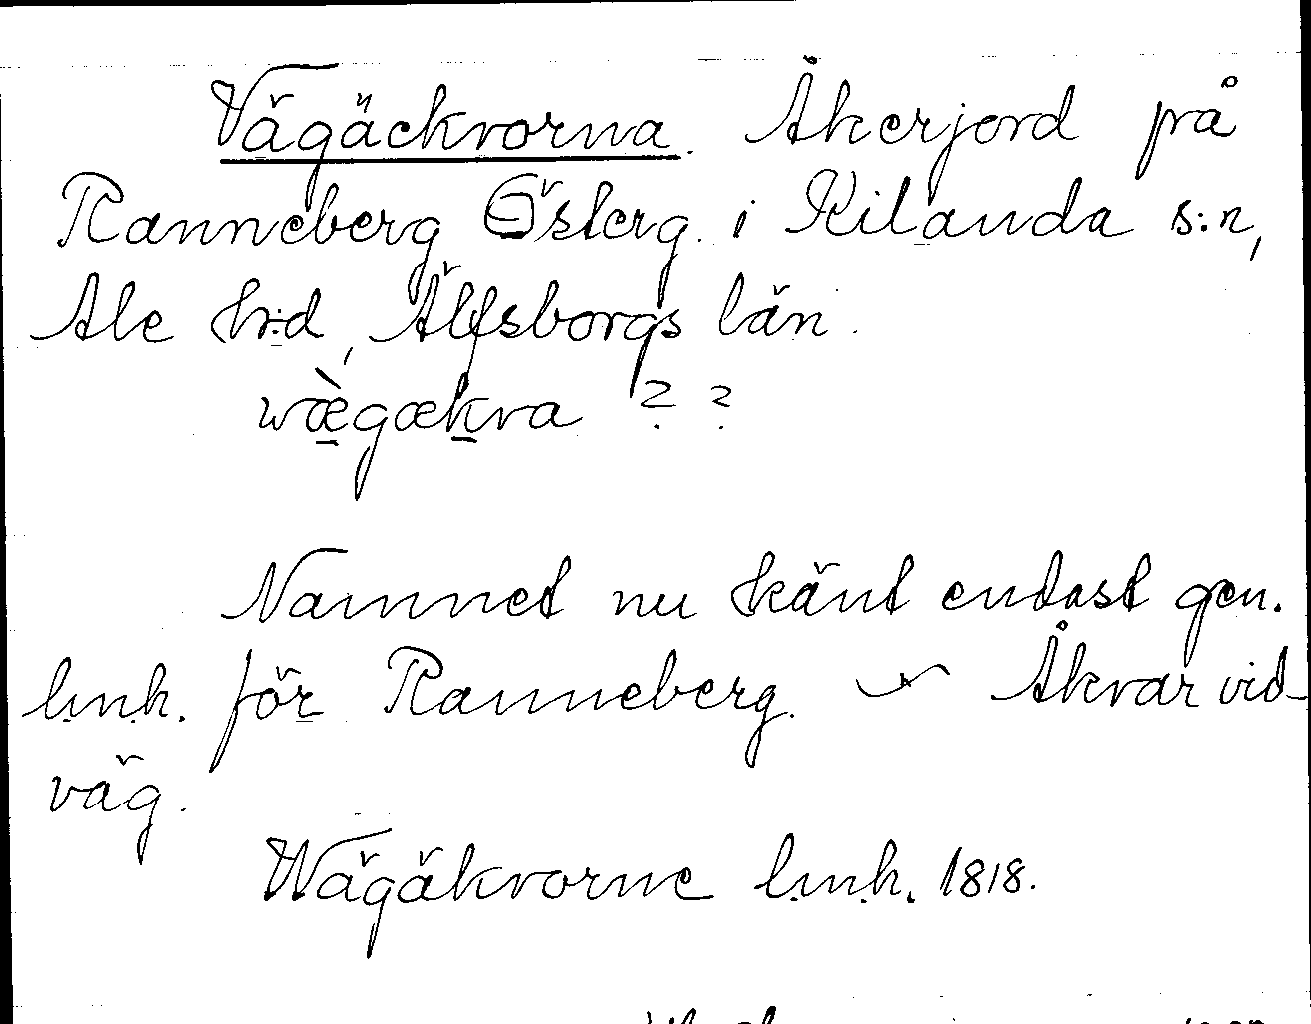 Vägäckrorna. Åkerjord på
Ranneberg Österg. i Kilanda s:n,
Ale hrd, Älfsborgs län.
wægækra ? ?
Namnet nu känt endast gen.
l.m.h. för Ranneberg. Åkrar vid
väg.
Wägäkrorne l.m.h. 1818.